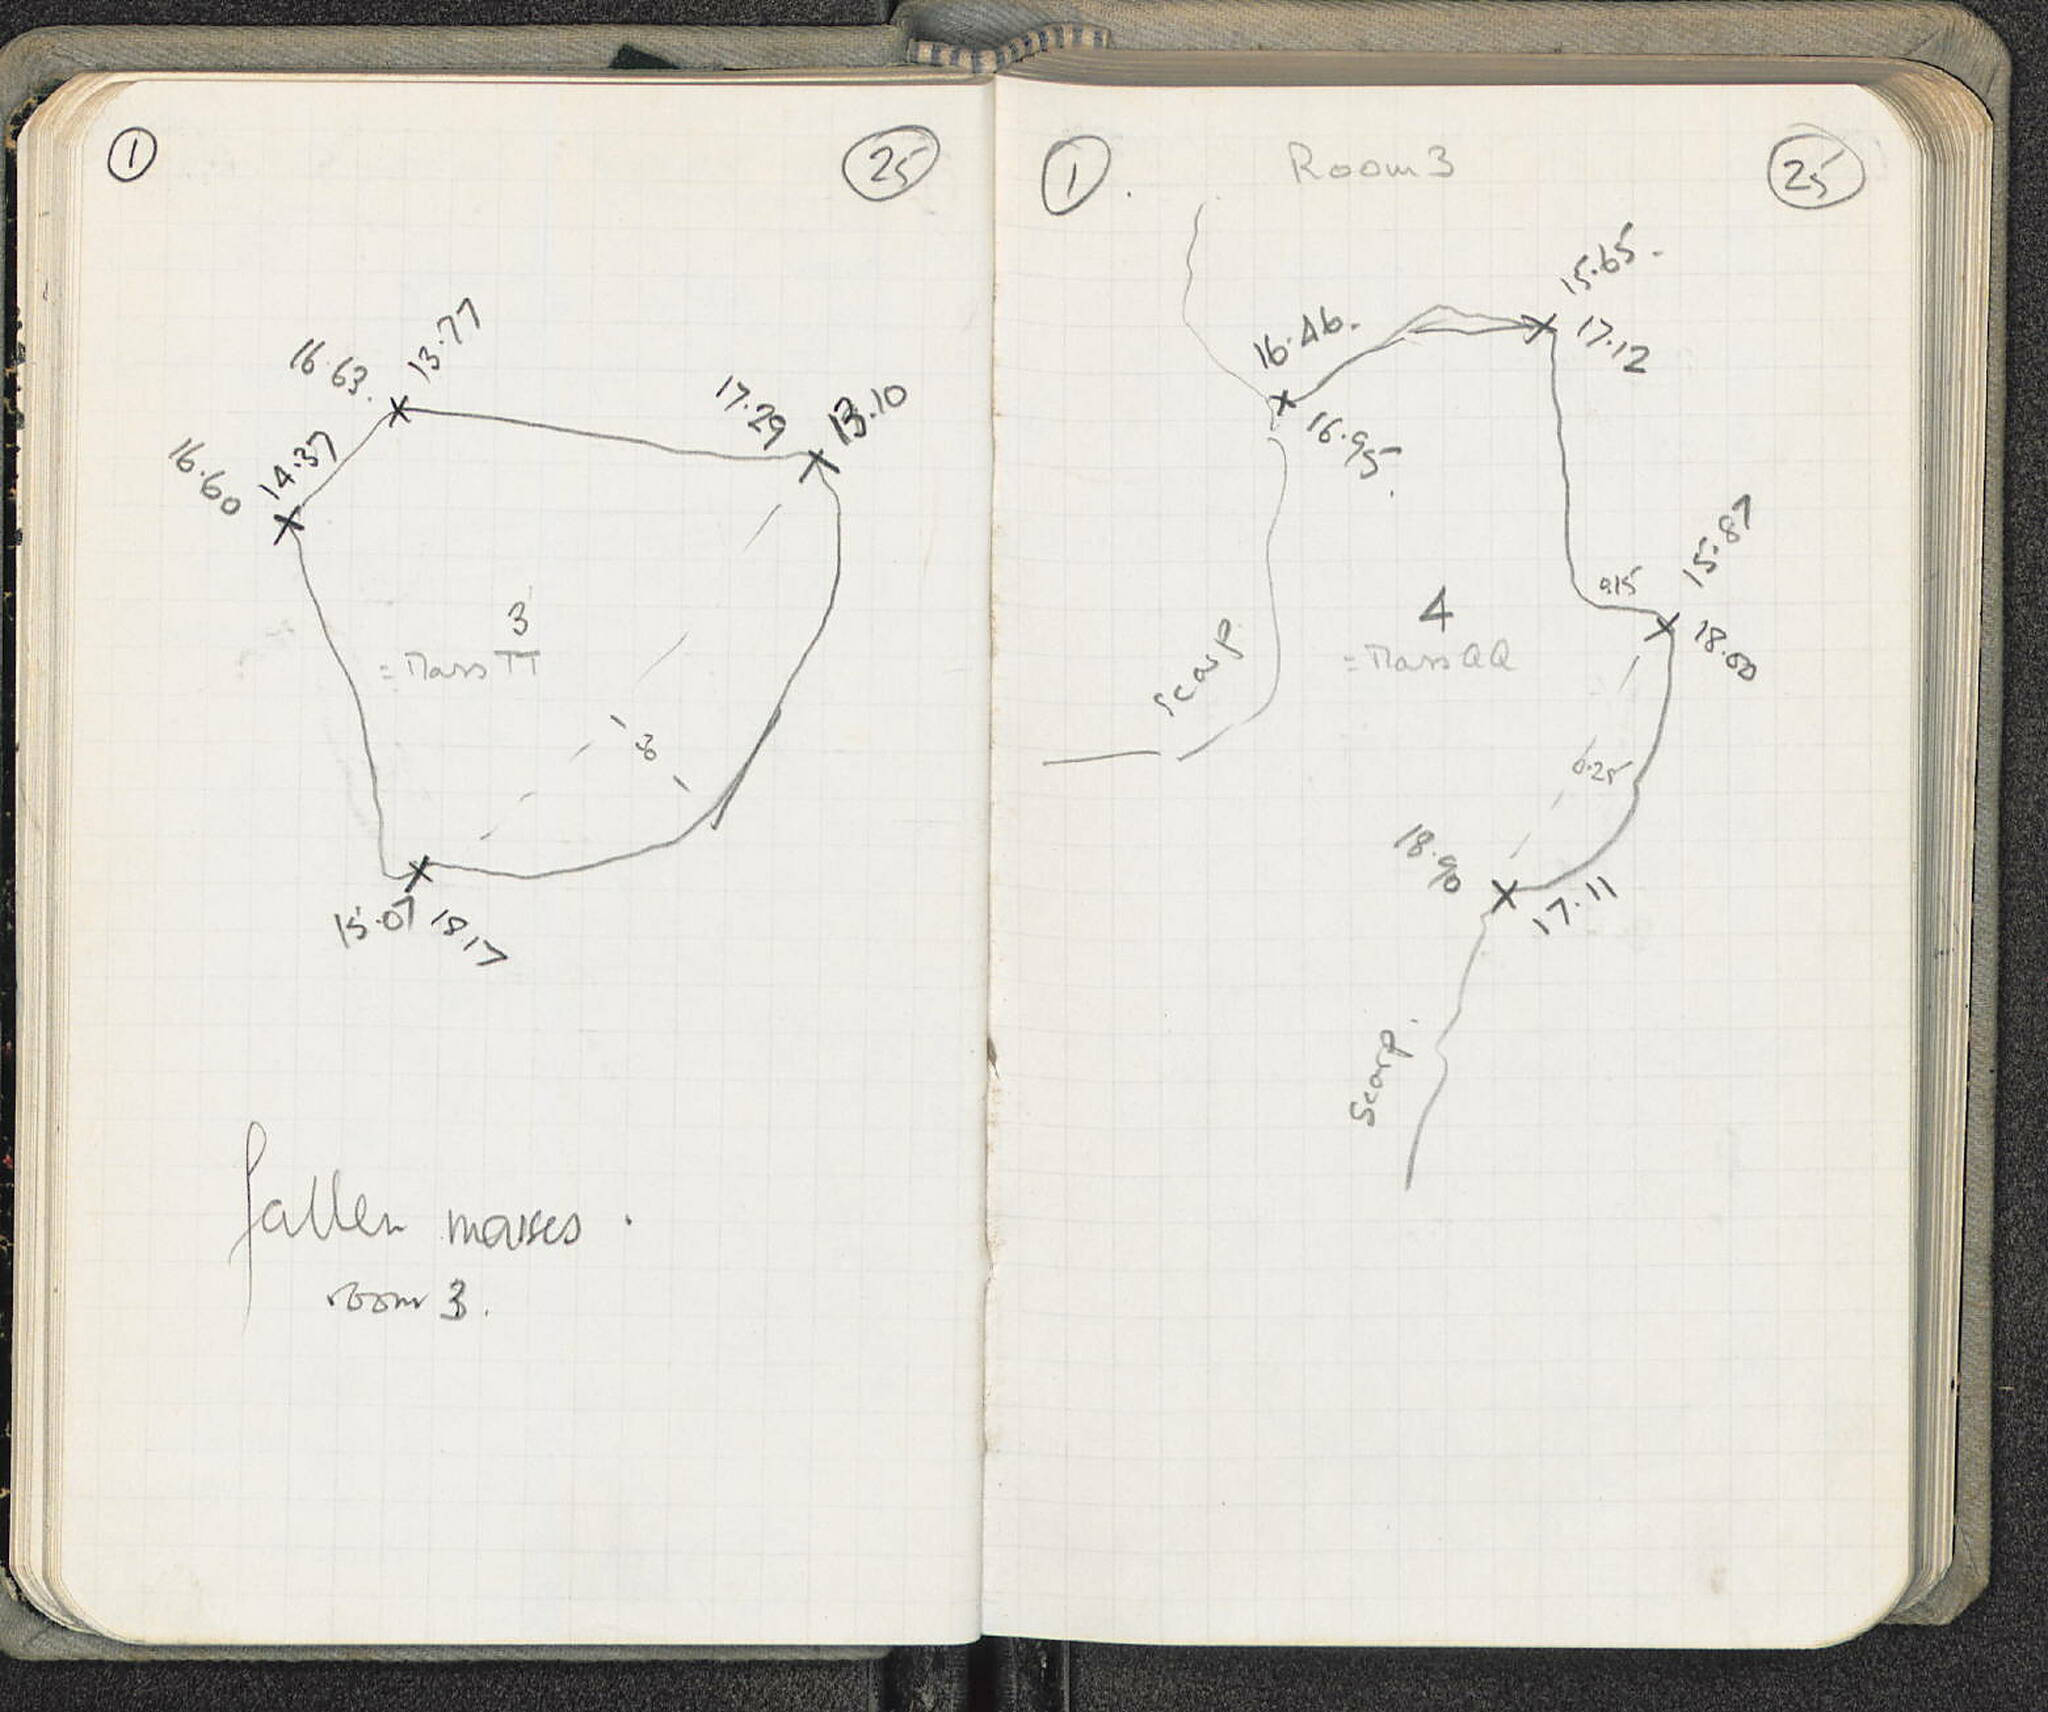 1
25
16.63.
13.77
17.29
13.10
16.60
14.37
3
= Mass TT
15.07
18.17
fallen masses.
room 3.
1.
Room 3
25
15.65.
16.46.
17.12
16.95.
15.87
0.15
4
18.00
= Mass QQ
Scarp.
0.25
18.90
17.11
Scarp.